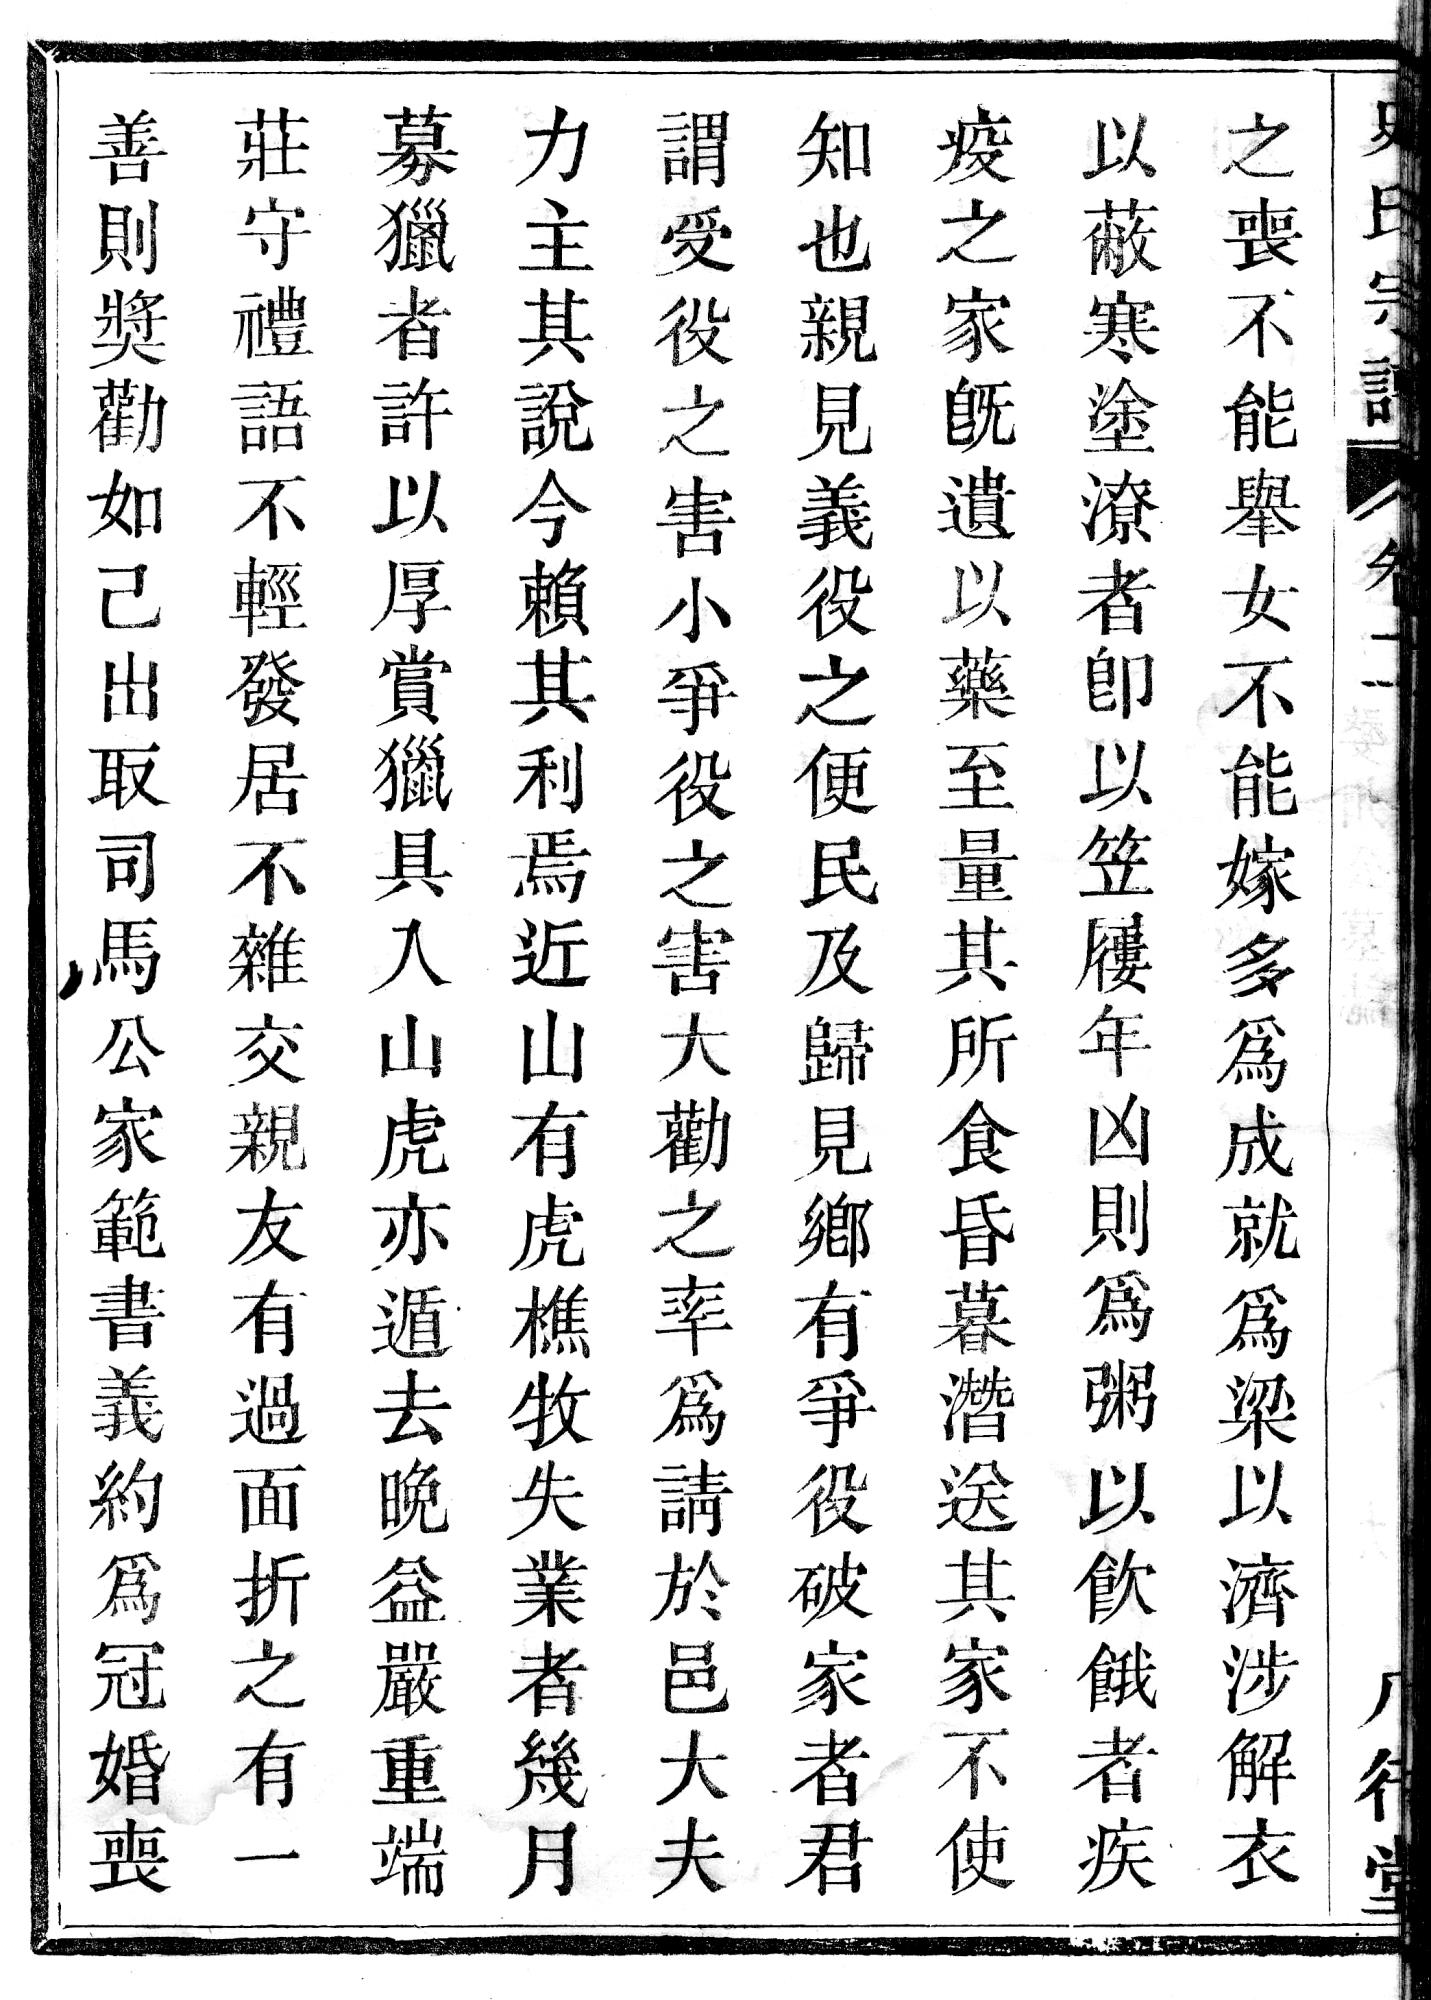 史氏宗譜 卷二 八行堂
之喪不能舉女不能嫁多爲成就爲梁以濟涉解衣
以蔽寒塗潦者卽以笠屨年凶則爲粥以飮餓者疾
疫之家旣遺以藥至量其所食昏暮潛送其家不使
知也親見義役之便民及歸見鄉有爭役破家者君
謂受役之害小爭役之害大勸之率爲請於邑大夫
力主其說今賴其利焉近山有虎樵牧失業者幾月
募獵者許以厚賞獵具入山虎亦遁去晚益嚴重端
莊守禮語不輕發居不雜交親友有過面折之有一
善則奬勸如己出取司馬公家範書義約爲冠婚喪